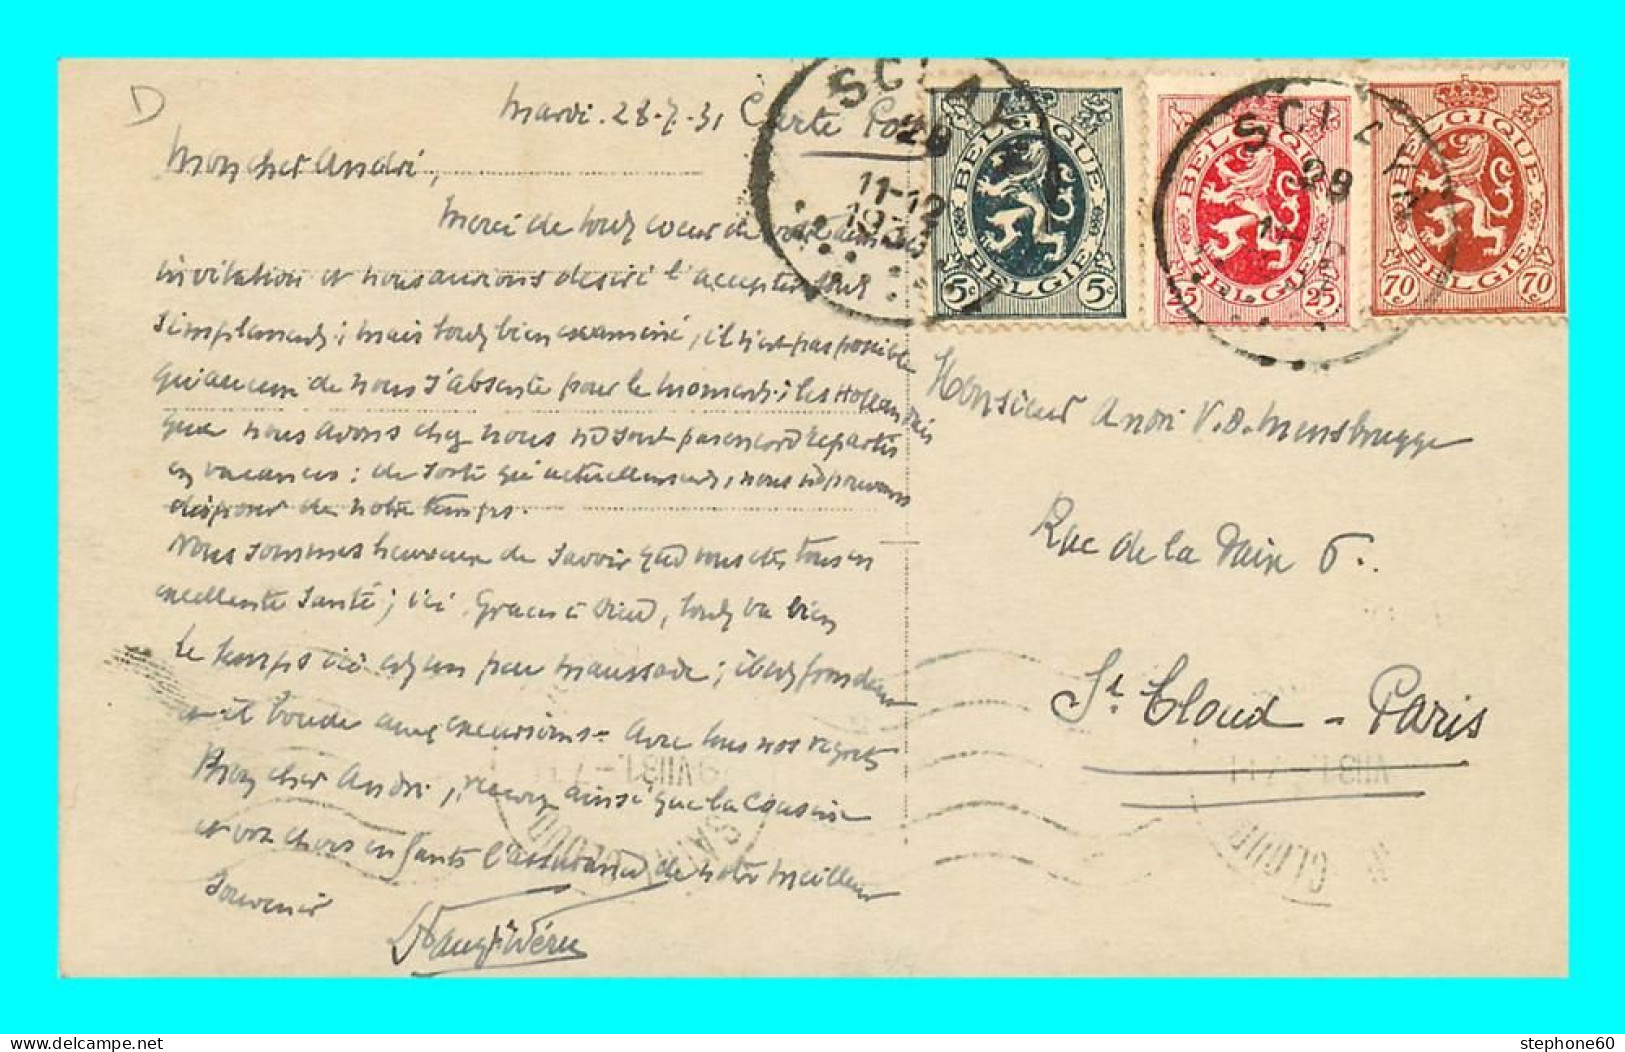 D
Mardi. 28-7-31 Carte Pos
Mon cher André,
Merci de tout cœur de votre aimable
invitation et nous aurions désiré l'accepter tout
simplement; mais tout bien examiné, il n'est pas possible
qu'aucun de nous s'absente pour le moment; les Hollandais
que nous avons chez nous ne sont pas encore repartis
en vacances: de sorte qu'actuellement, nous ne pouvons
disposer de notre temps.
Nous sommes heureux de savoir que vous êtes tous en
excellente santé; ici Grâces à Dieu, tout va bien
Le temps ici est un peu maussade; il est frondeur
et il boude aux excursions- Avec tous nos regrets
Mon cher André, recevez ainsi que la Cousine
et vos chers enfants l'assurance de notre meilleur
souvenir
SCLAY
28
11-12
19
BELGIQUE
5c 5c
BELGIE
SCLAY
28
BELGIQUE
25 25c
BELGIE
BELGIQUE
70c 70c
BELGIE
Monsieur André V.D. Mensbrugge
Rue de la Paix 6.
St. Cloud - Paris
VII31
CLOUD
VII31
CLOUD
stephone60